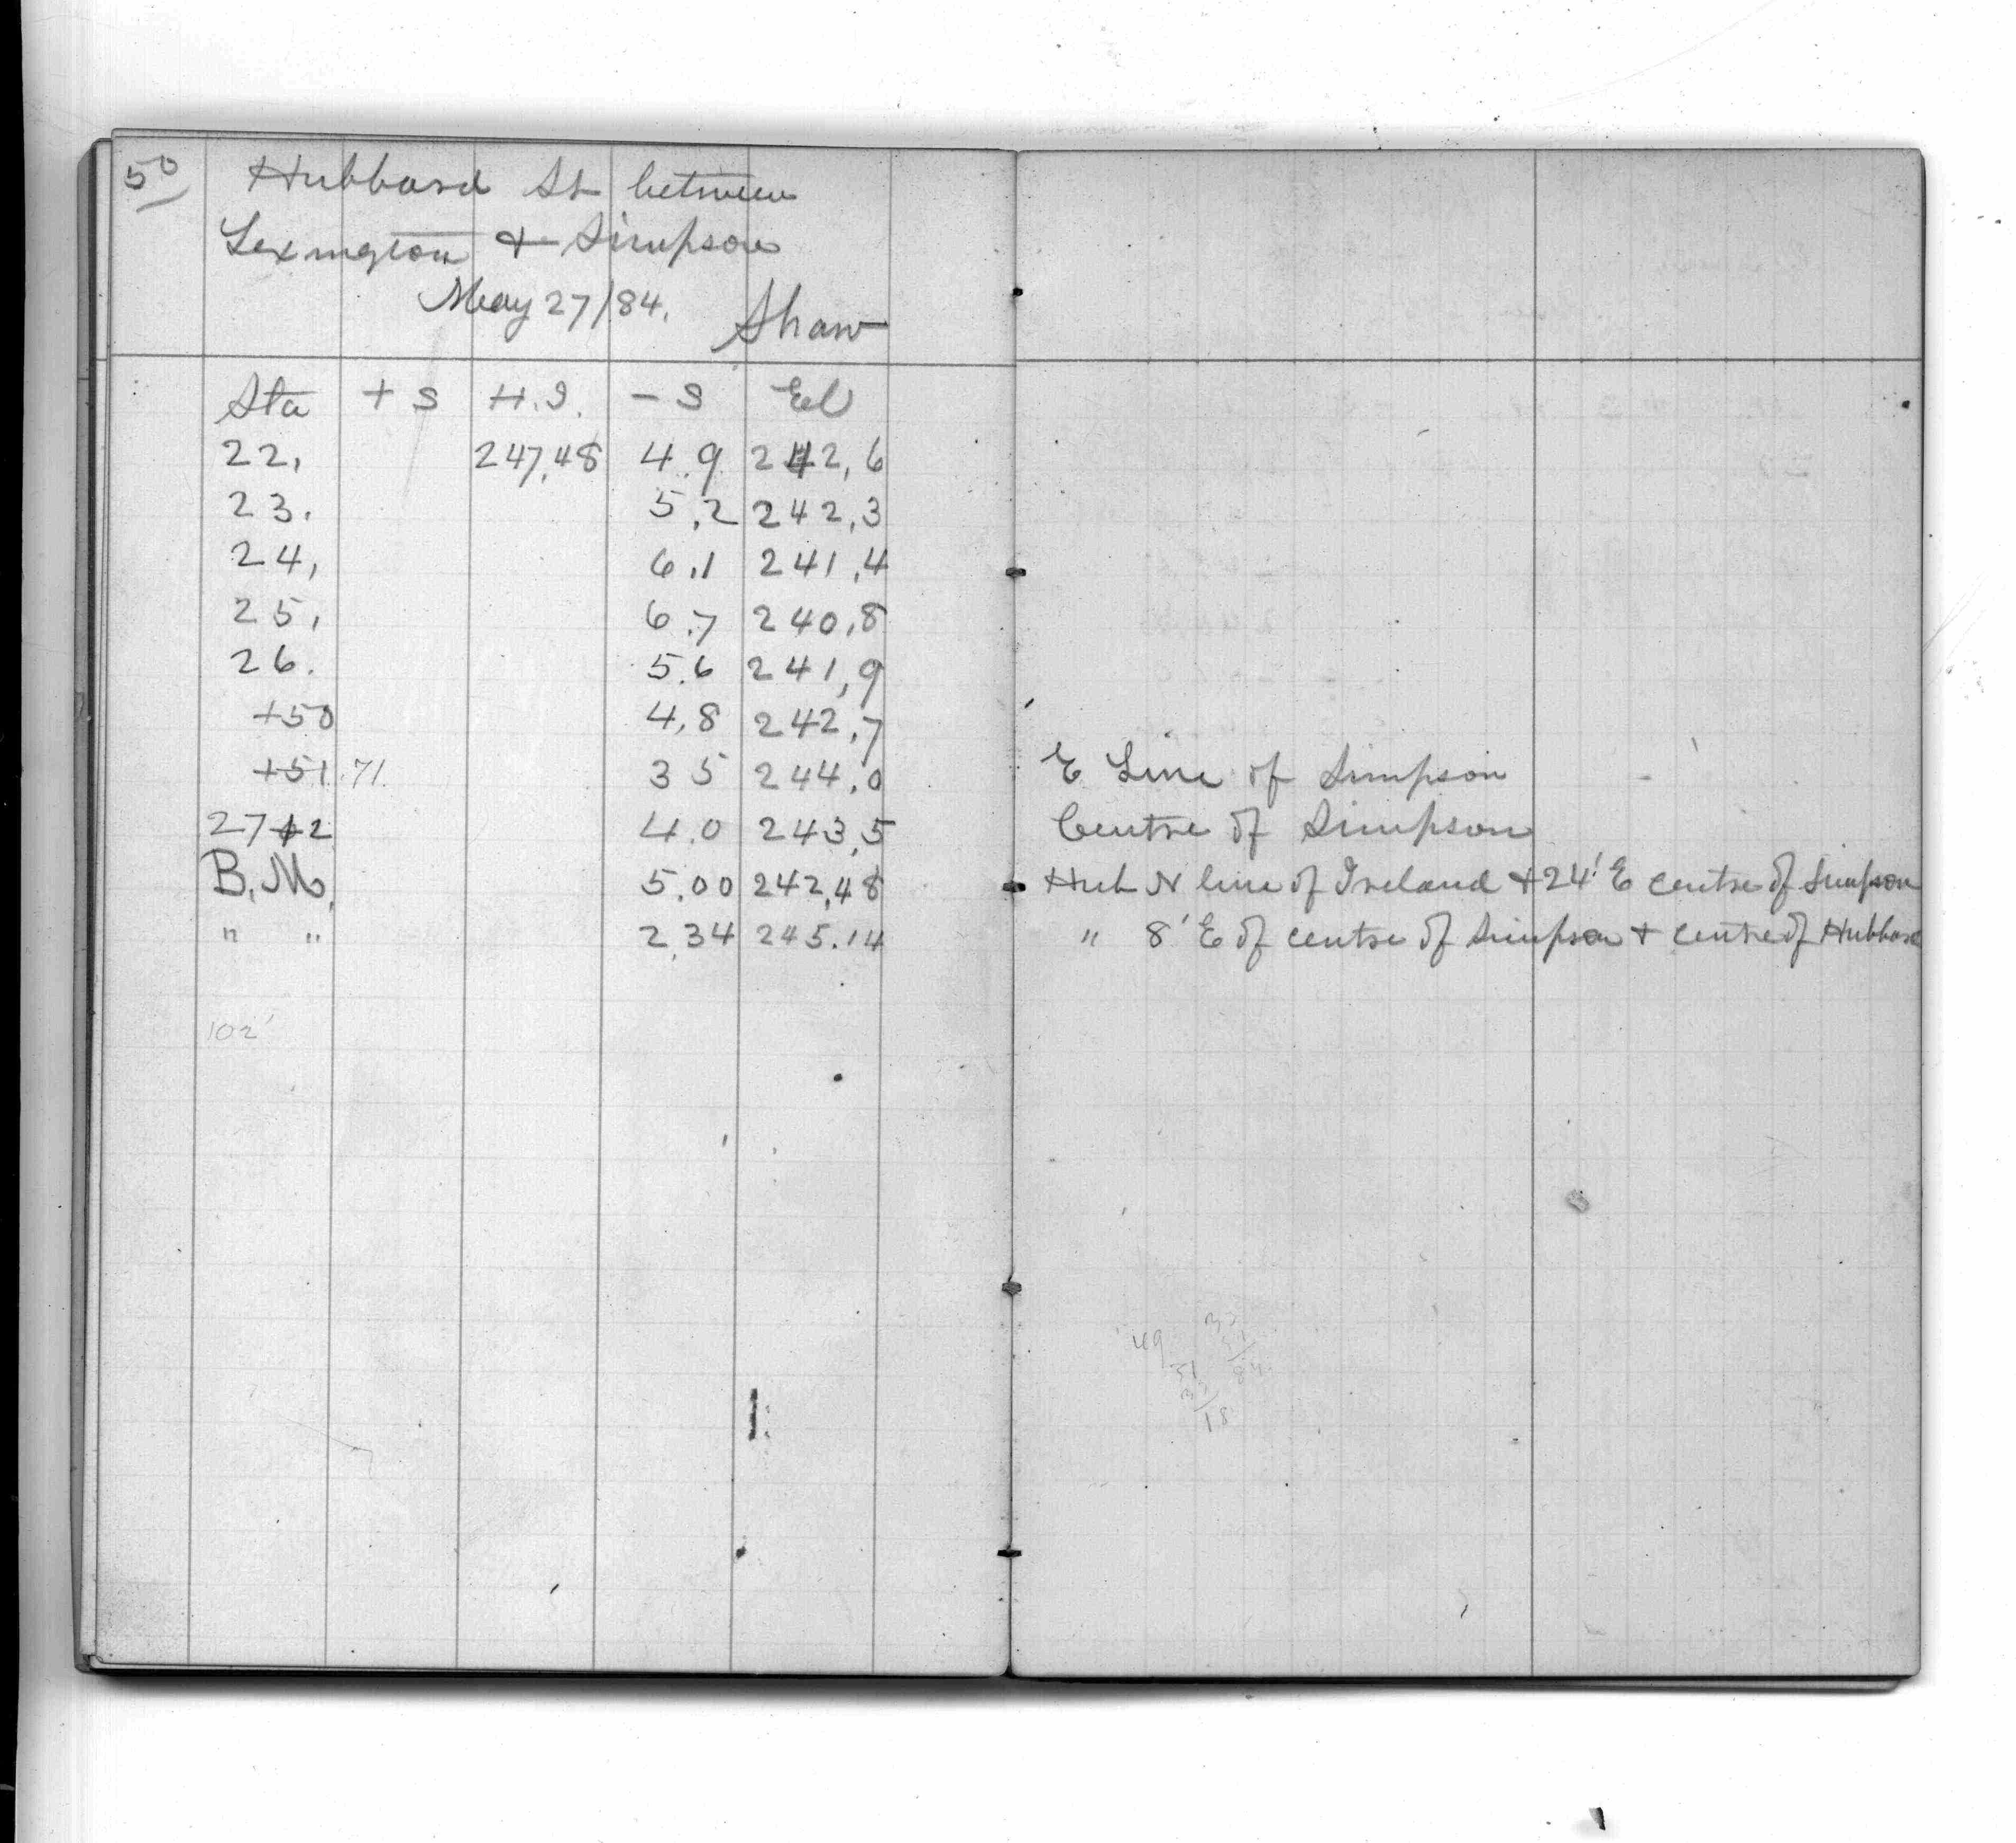 50
Hubbard St between
Lexington + Simpson
May 27/84. Shaw
Sta + S H.I. - S El
22, 247,48 4.9 242,6
23. 5,2 242,3
24, 6.1 241,4
25, 6.7 240,8
26. 5.6 241,9
+50 4,8 242,7
+51.71. 3 5 244,0 E Line of Simpson
27+2 4.0 243,5 Centre of Simpson
B.M, 5.00 242,48 Hub N line of Ireland + 24' E centre of Simpson
" " 2,34 245.14 " 8' E of centre of Simpson + centre of Hubbard
102'
49
18